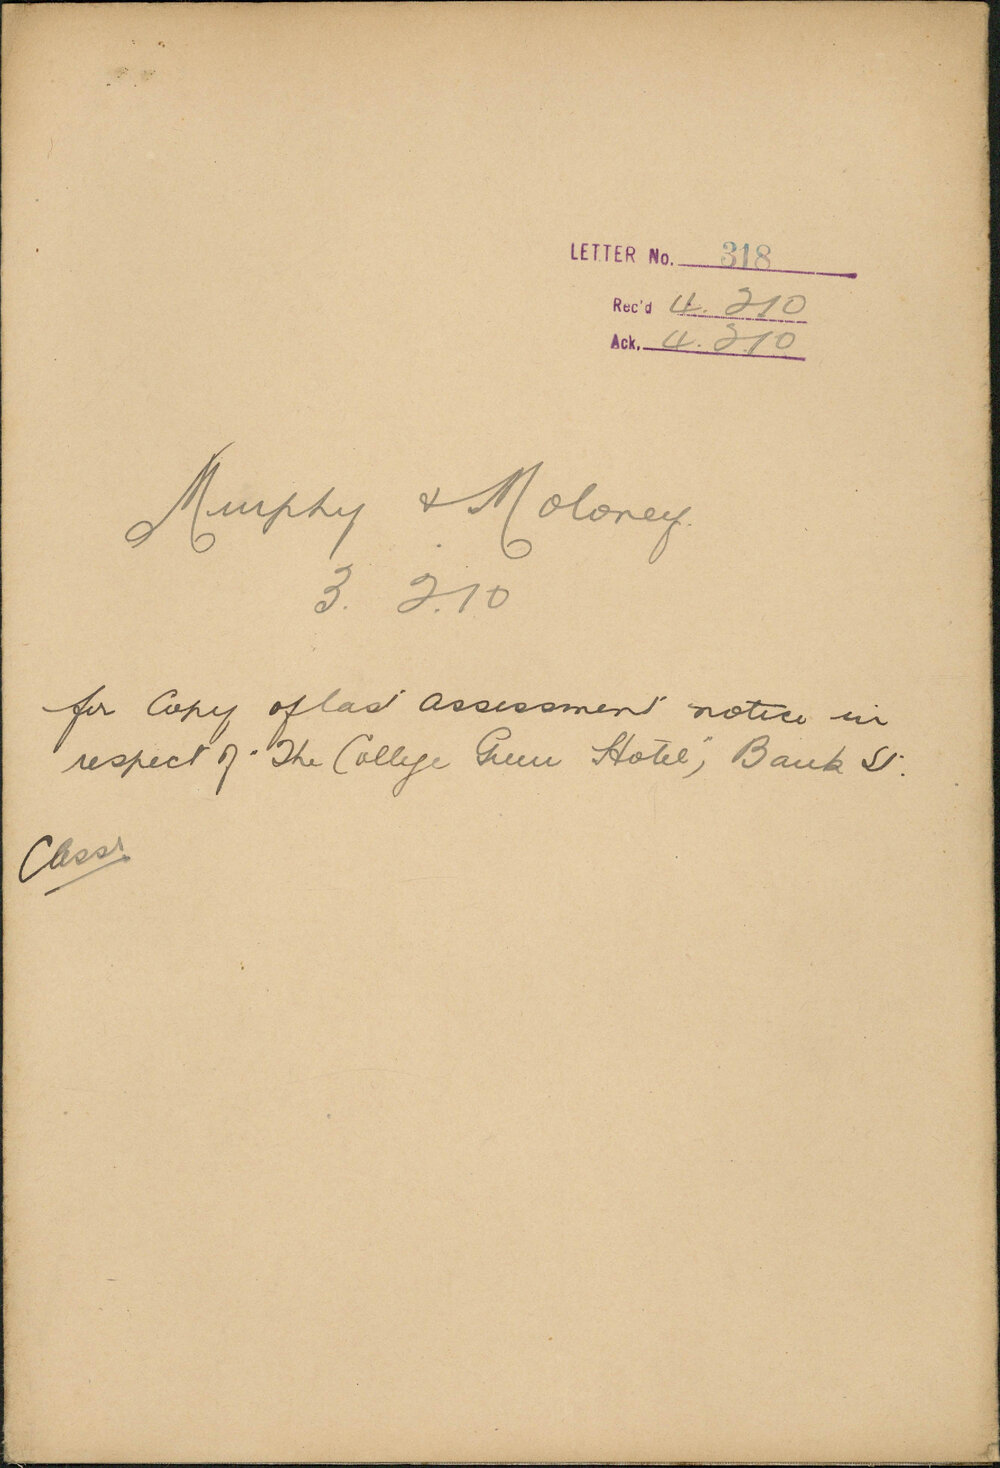 LETTER No. 318
Rec'd 4. 2 10
Ack. 4. 2. 10
Murphy & Moloney.
3. 2. 10
for Copy of last assessment notice in
respect of "The College Green Hotel", Bank St.